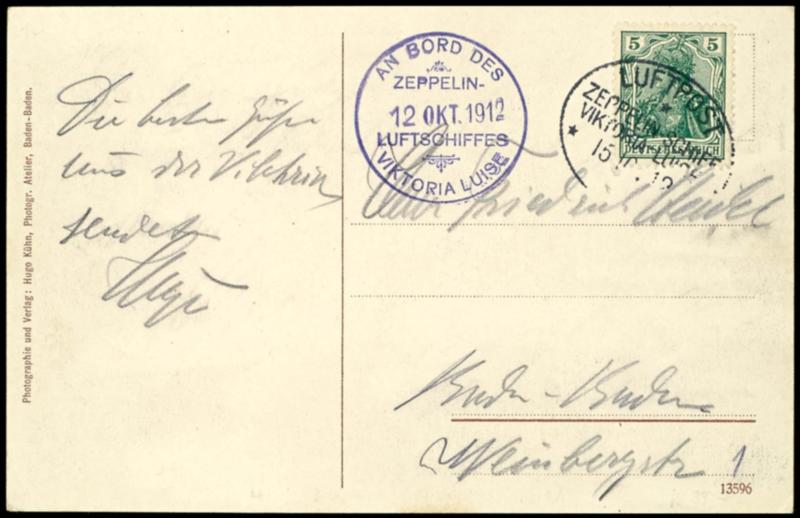 Die besten Grüße
aus der Viktoria
sendet
Photographie und Verlag: Hugo Kühn, Photogr. Atelier, Baden-Baden.
AN BORD DES
ZEPPELIN-
12 OKT. 1912
LUFTSCHIFFES
VIKTORIA LUISE
5 5
DEUTSCHES REICH
LUFTPOST
ZEPPELIN-SCHIFF
VIKTORIA LUISE
15
Friedrich
Baden-Baden
Weinbergstr 1
13596